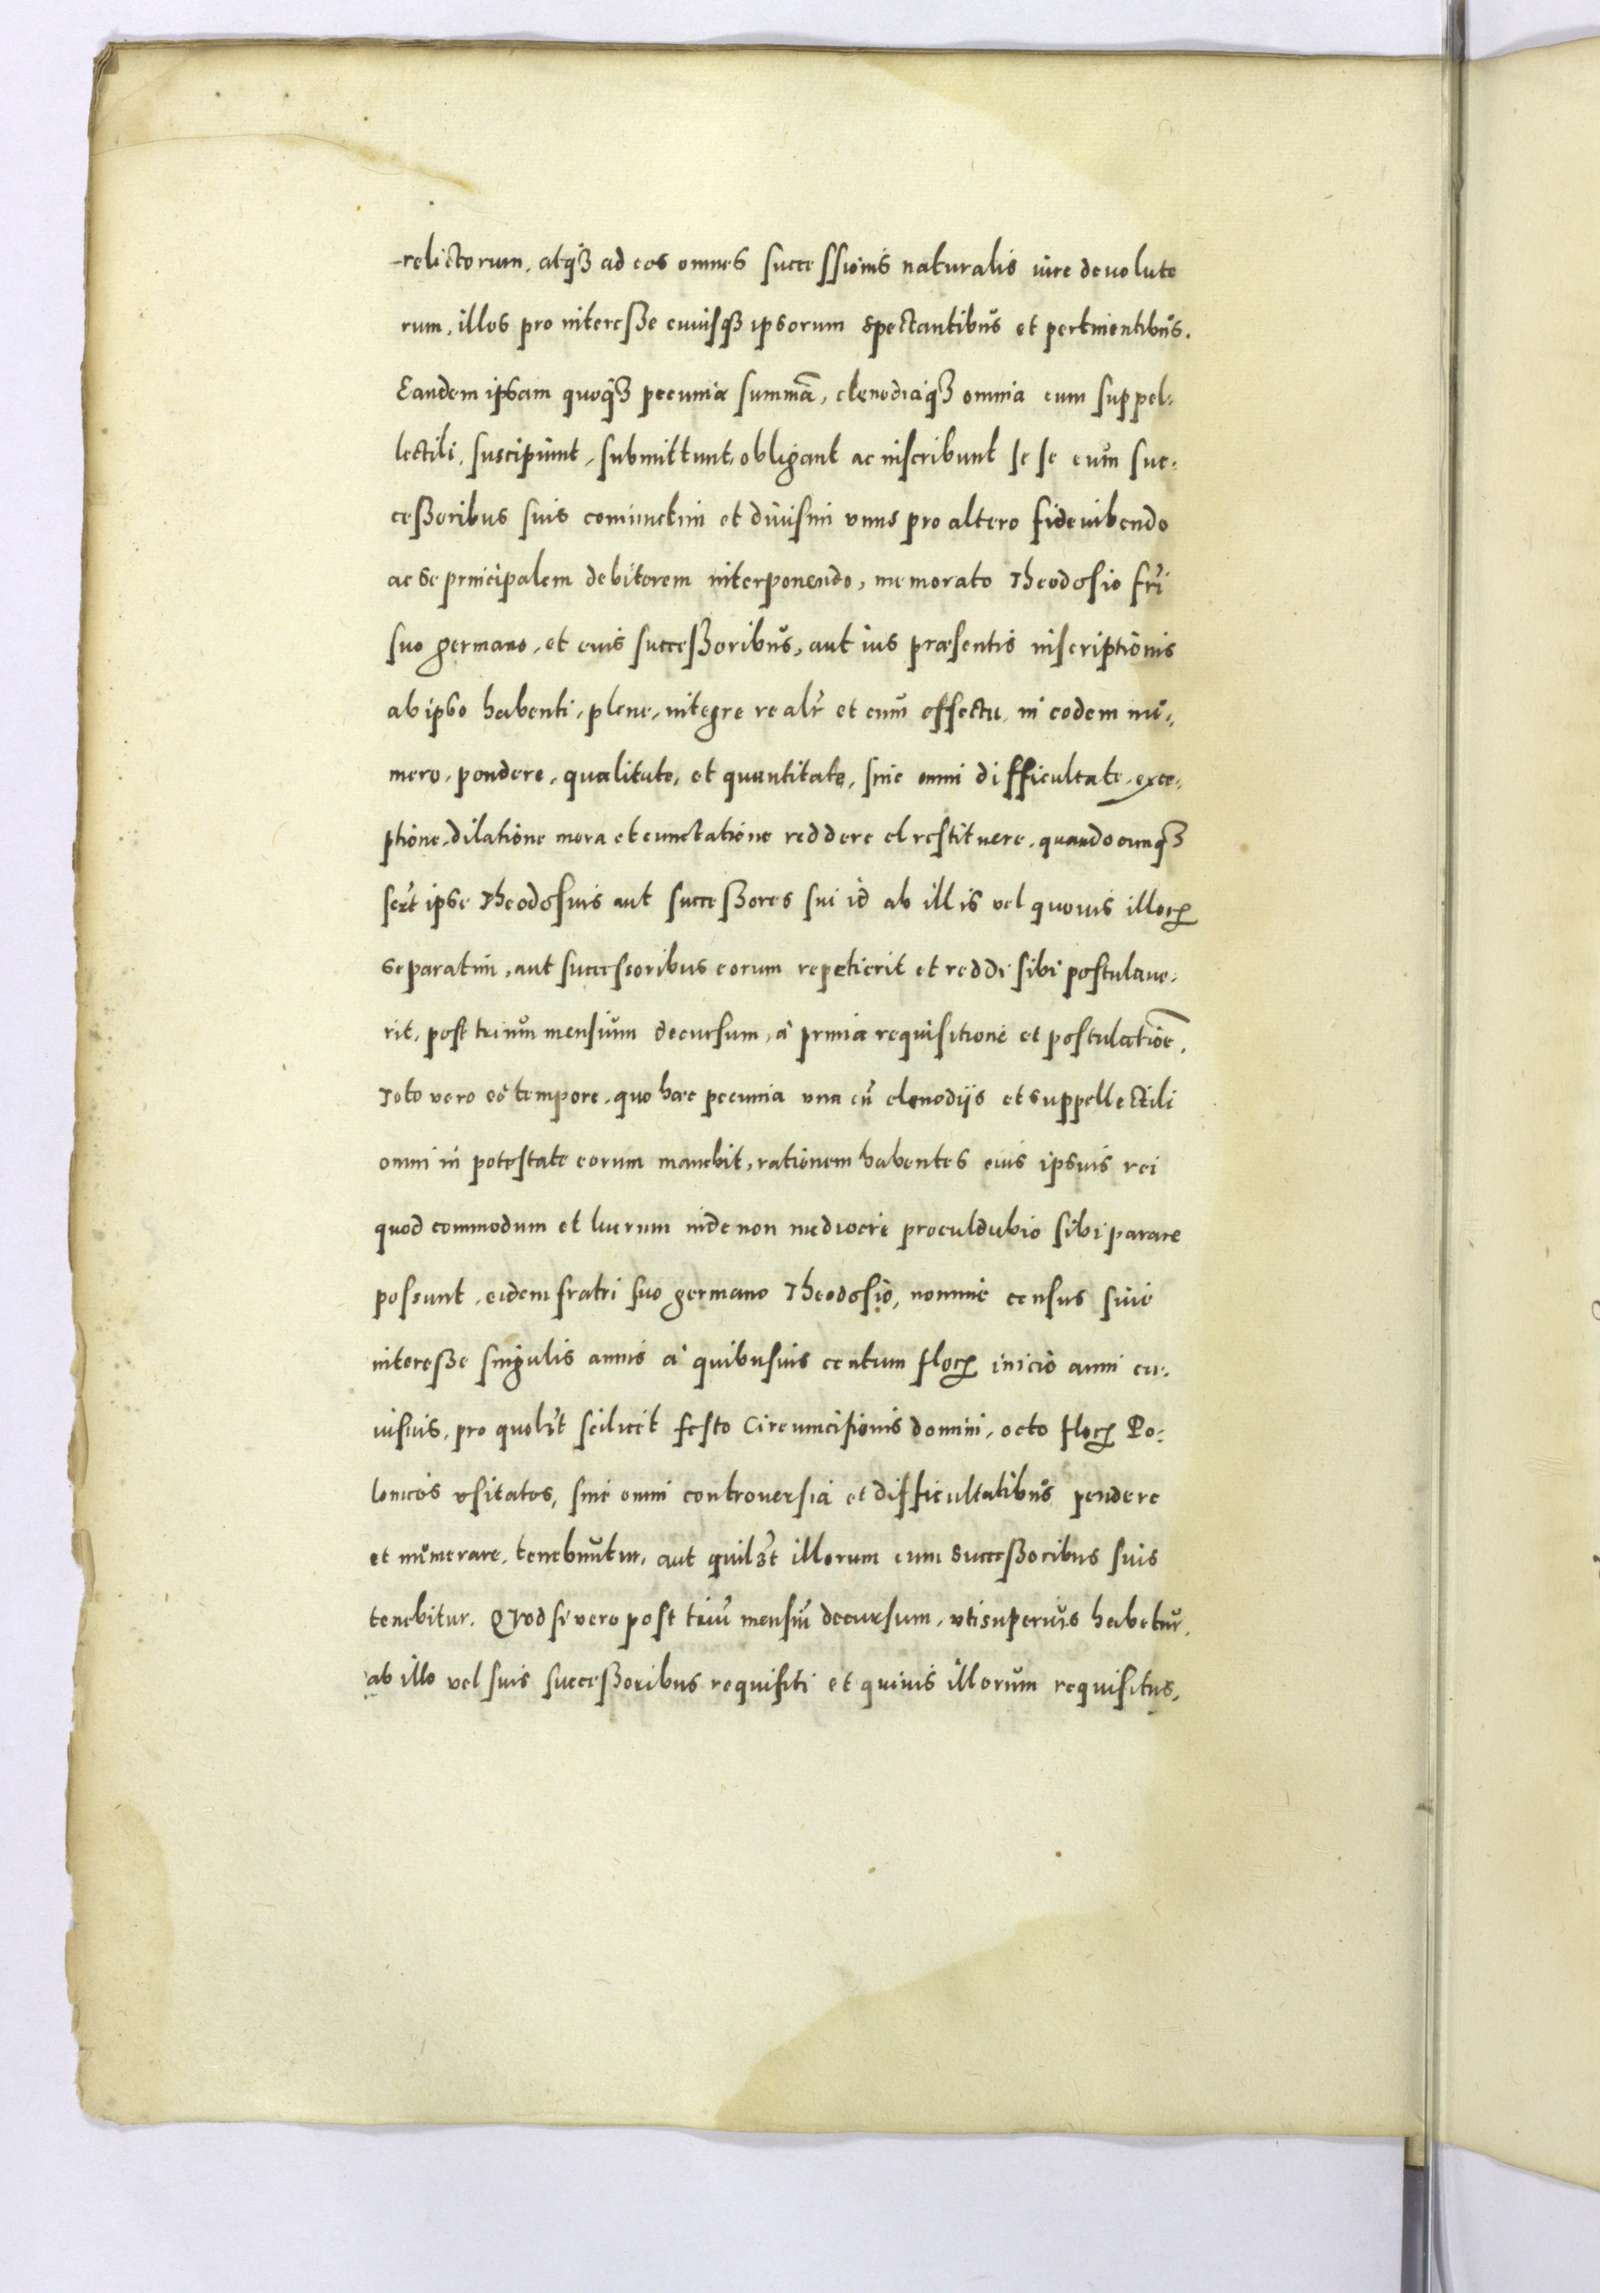 relictorum, atq₃ ad eos omnes successionis naturalis iure deuoluto
rum, illos pro interesse cuiusq₃ ipsorum spectantibus et pertinentibus.
Eandem ipsam quoq₃ pecuniæ summā, clenodiaq₃ omnia cum suppel-
lectili, suscipiunt, submittunt, obligant ac inscribunt se se cum suc-
cessoribus suis coniunctim et diuisim vnus pro altero fideiubendo
ac se principalem debitorem interponendo, memorato Theodosio fr̃i
suo germano, et eius successoribus, aut ius præsentis inscriptionis
ab ipso habenti, plene, integre realr̃ et cum effectu, in eodem nu-
mero, pondere, qualitate, et quantitate, sine omni difficultate, exce-
ptione, dilatione mora et cunctatione reddere et restituere, quandocunq₃
 ipse Theodosius aut successores sui id ab illis vel quouis illorꝝ
separatim, aut successoribus eorum repetierit et reddi sibi postulaue-
rit, post trium mensium decursum, à prima requisitione et postulatiõe.
Toto vero eo tempore, quo hæc pecunia vna cũ clenodijs et suppellectili
omni in potestate eorum manebit, rationem habentes eius ipsius rei
quod commodum et lucrum inde non mediocre proculdubio sibi parare
possunt, eidem fratri suo germano Theodosio, nomine census siue
interesse singulis annis à quibusuis centum florꝝ inicio anni cu-
iusuis, pro quolꝫt scilicet festo Circumcisionis domini, octo florꝝ Po-
lonicos vsitatos, sine omni controuersia et difficultatibus pendere
et numerare, tenebuntur, aut quilꝫt illorum cum successoribus suis
tenebitur. Quod si vero post triũ mensiũ decursum, vti superius habetur,
ab illo vel suis successoribus requisiti et quiuis illorum requisitus,